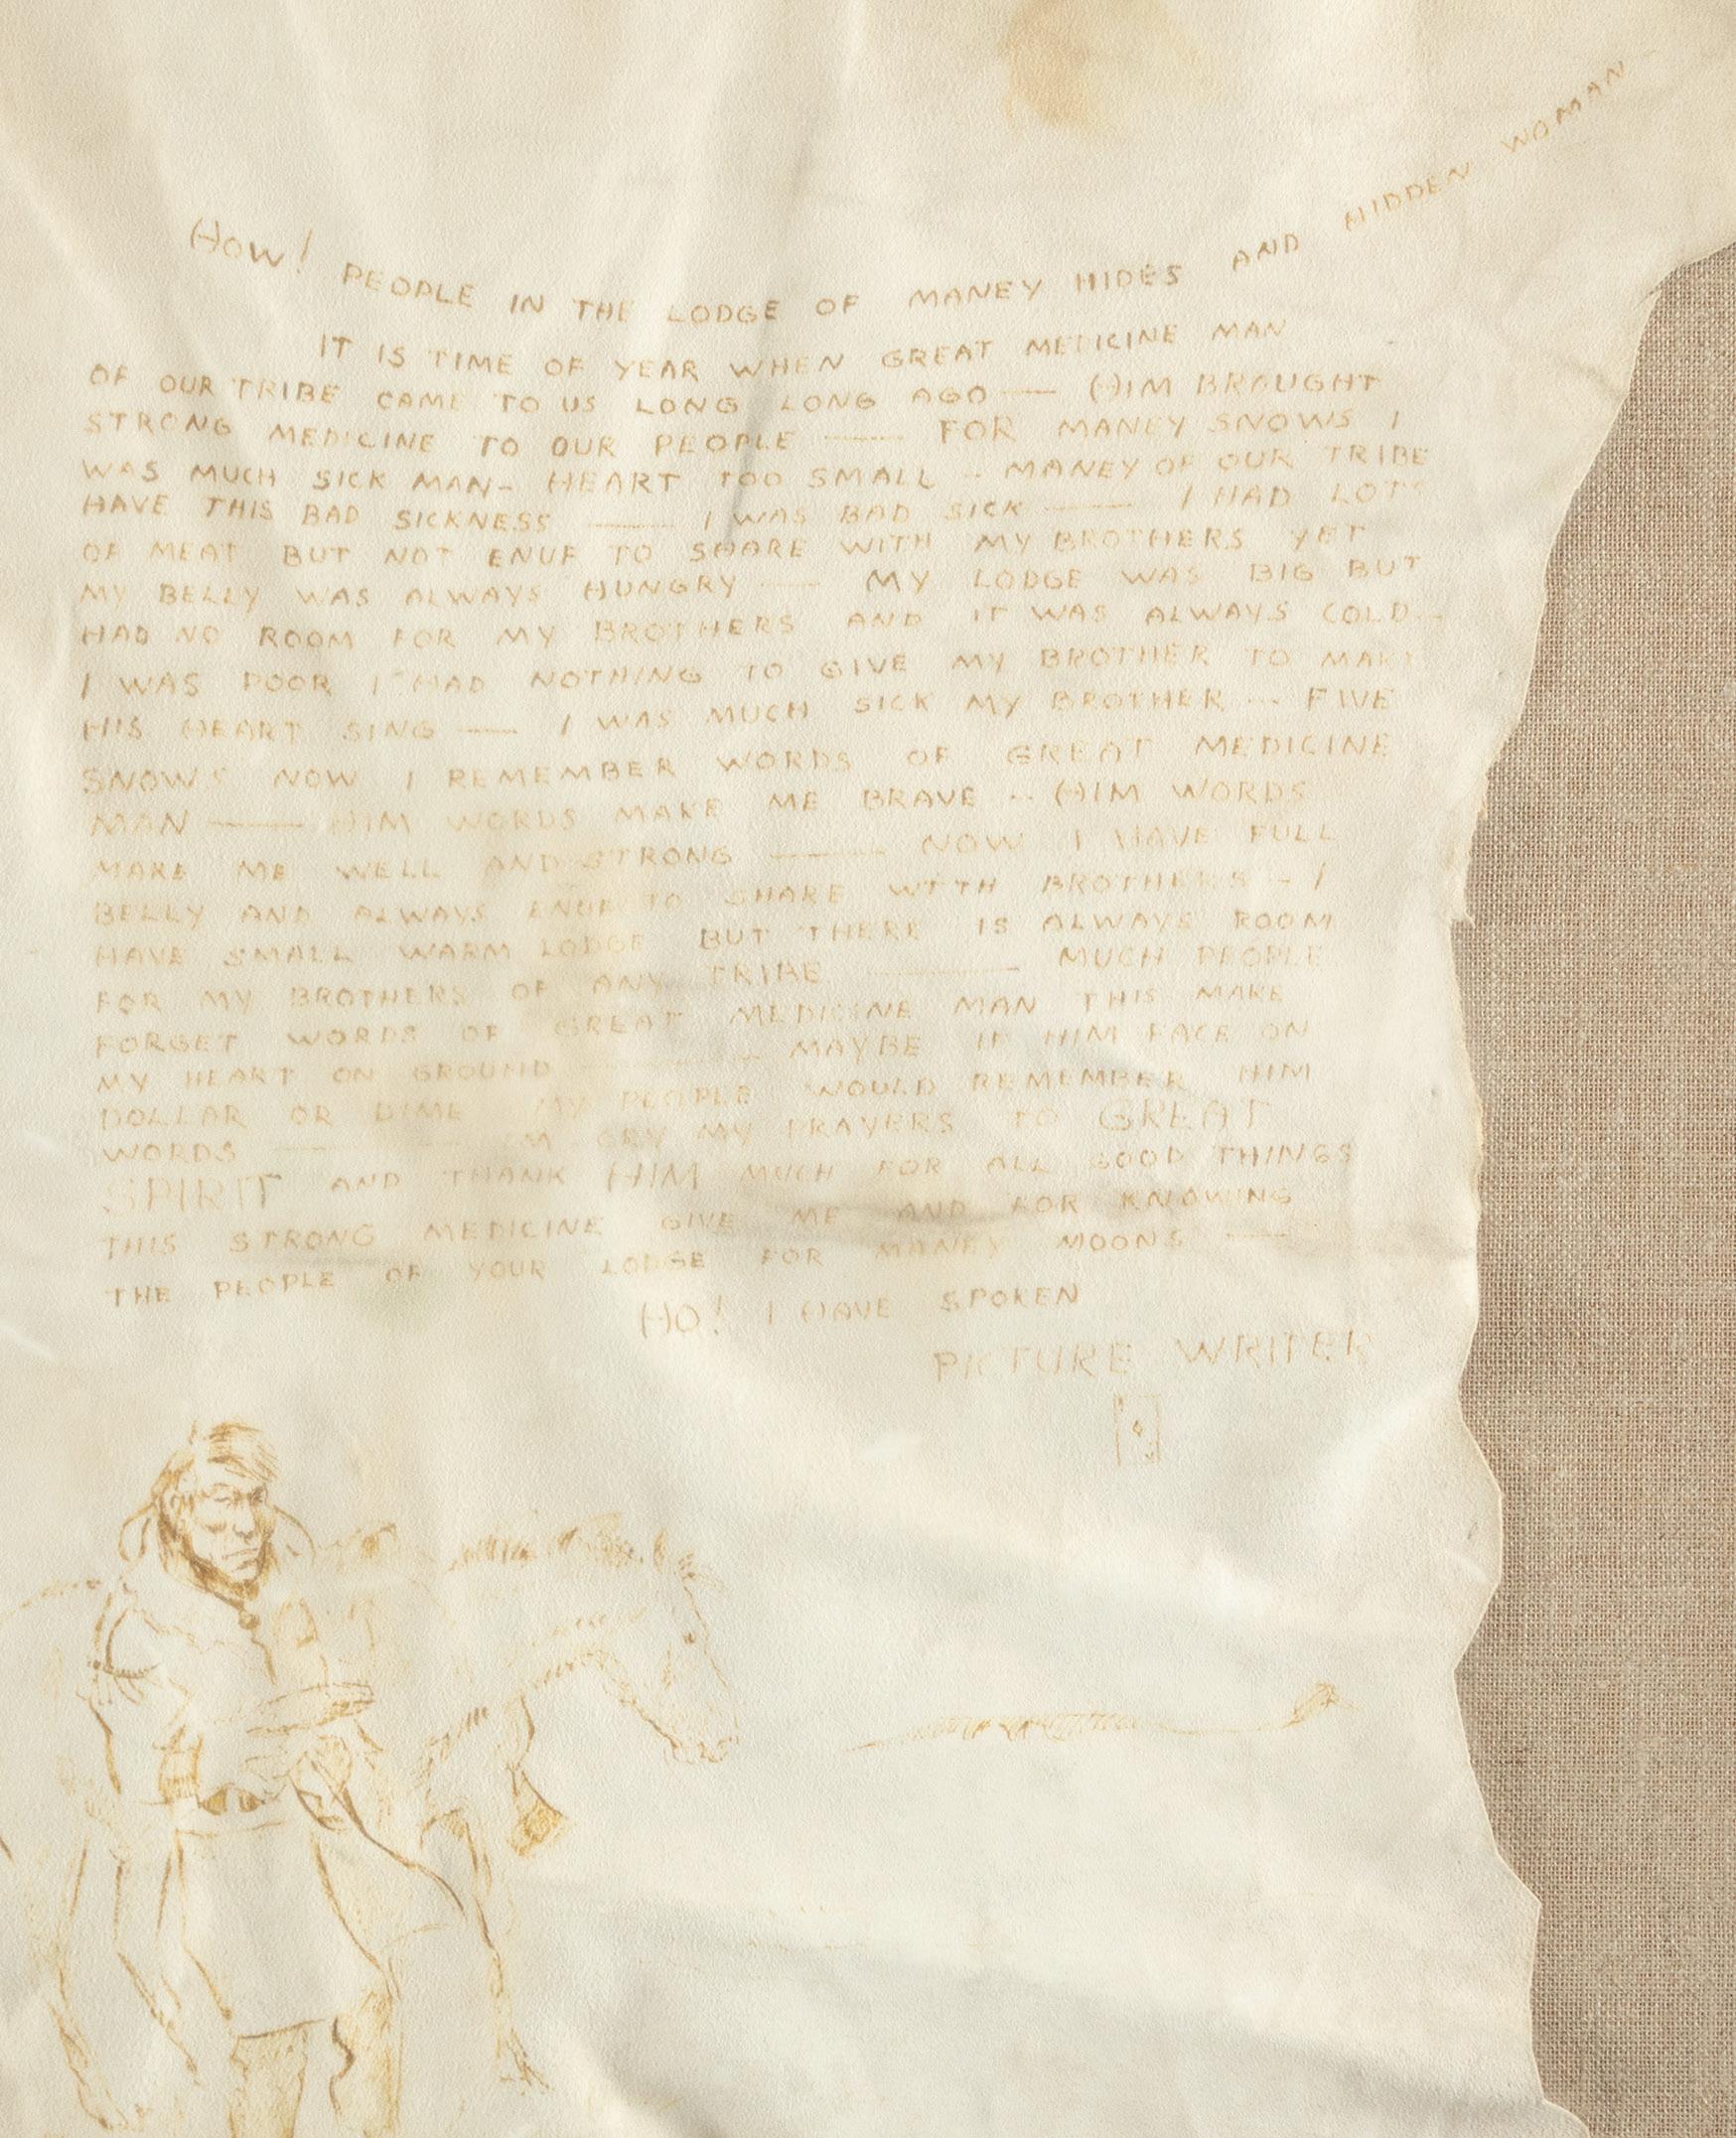 HOW! PEOPLE IN THE LODGE OF MANEY HIDES AND HIDDEN WOMAN
IT IS TIME OF YEAR WHEN GREAT MEDICINE MAN
OF OUR TRIBE CAME TO US LONG LONG AGO — HIM BROUGHT
STRONG MEDICINE TO OUR PEOPLE — FOR MANEY SNOWS I
WAS MUCH SICK MAN- HEART TOO SMALL -- MANEY OF OUR TRIBE
HAVE THIS BAD SICKNESS — I WAS BAD SICK — I HAD LOTS
OF MEAT BUT NOT ENUF TO SHARE WITH MY BROTHERS YET
MY BELLY WAS ALWAYS HUNGRY — MY LODGE WAS BIG BUT
HAD NO ROOM FOR MY BROTHERS AND IT WAS ALWAYS COLD --
I WAS POOR I HAD NOTHING TO GIVE MY BROTHER TO MAKE
HIS HEART SING — I WAS MUCH SICK MY BROTHER -- FIVE
SNOWS NOW I REMEMBER WORDS OF GREAT MEDICINE
MAN — HIM WORDS MAKE ME BRAVE -- HIM WORDS
MAKE ME WELL AND STRONG — NOW I HAVE FULL
BELLY AND ALWAYS ENUF TO SHARE WITH BROTHERS - I
HAVE SMALL WARM LODGE BUT THERE IS ALWAYS ROOM
FOR MY BROTHERS OF ANY TRIBE — MUCH PEOPLE
FORGET WORDS OF GREAT MEDICINE MAN THIS MAKE
MY HEART ON GROUND — MAYBE IF HIM FACE ON
DOLLAR OR DIME MY PEOPLE WOULD REMEMBER HIM
WORDS — CRY MY PRAYERS TO GREAT
SPIRIT AND THANK HIM MUCH FOR ALL GOOD THINGS
THIS STRONG MEDICINE GIVE ME AND FOR KNOWING
THE PEOPLE OF YOUR LODGE FOR MANEY MOONS —
HO! I HAVE SPOKEN
PICTURE WRITER